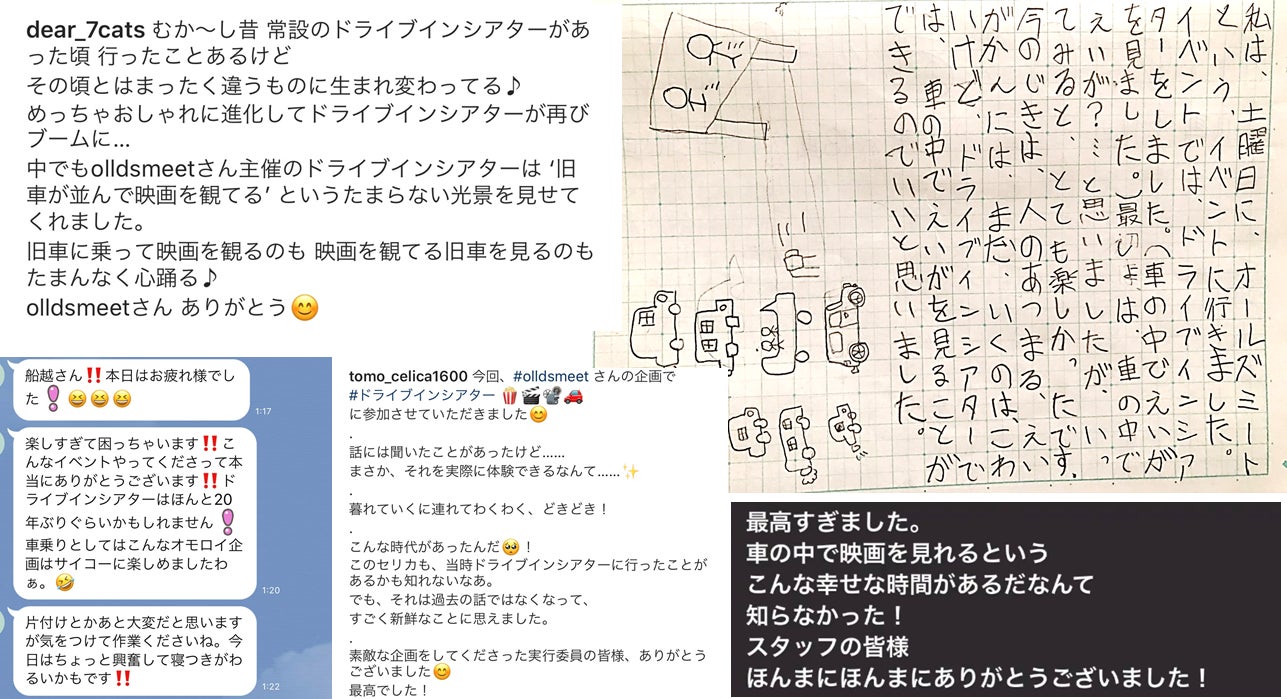 dear_7cats むか〜し昔 常設のドライブインシアターがあ
った頃 行ったことあるけど
その頃とはまったく違うものに生まれ変わってる♪
めっちゃおしゃれに進化してドライブインシアターが再び
ブームに...
中でもolldsmeetさん主催のドライブインシアターは ‘旧
車が並んで映画を観てる’ というたまらない光景を見せて
くれました。
旧車に乗って映画を観るのも 映画を観てる旧車を見るのも
たまんなく心踊る♪
olldsmeetさん ありがとう😊
私は、土曜日に、オールズミート
という、イベントに行きました。
イベントでは、ドライブインシア
ターをしました。(車の中でえいが
を見ました。)最しょは、車の中で
えいが?…と思いましたが、いっ
てみると、とても楽しかったです。
今のじきは、人のあつまる、えい
がかんには、まだ、いくのは、こわ
いけど、ドライブインシアターで
は、車の中でえいがを見ることが
できるのでいいと思いました。
船越さん‼️本日はお疲れ様でし
た❗😆😆😆
1:17
楽しすぎて困っちゃいます‼️こ
んなイベントやってくださって本
当にありがとうございます‼️ド
ライブインシアターはほんと20
年ぶりぐらいかもしれません❗
車乗りとしてはこんなオモロイ企
画はサイコーに楽しめましたわ
ぁ。🤣
1:20
片付けとかあと大変だと思います
が気をつけて作業くださいね。今
日はちょっと興奮して寝つきがわ
るいかもです‼️
1:22
tomo_celica1600 今回、#olldsmeet さんの企画で
#ドライブインシアター 🍿🎬📽️🚗
に参加させていただきました😊
.
話には聞いたことがあったけど......
まさか、それを実際に体験できるなんて......✨
.
暮れていくに連れてわくわく、どきどき!
.
こんな時代があったんだ🥺!
このセリカも、当時ドライブインシアターに行ったことが
あるかも知れないなあ。
でも、それは過去の話ではなくなって、
すごく新鮮なことに思えました。
.
素敵な企画をしてくださった実行委員の皆様、ありがとう
ございました😊
最高でした!
最高すぎました。
車の中で映画を見れるという
こんな幸せな時間があるだなんて
知らなかった!
スタッフの皆様
ほんまにほんまにありがとうございました!